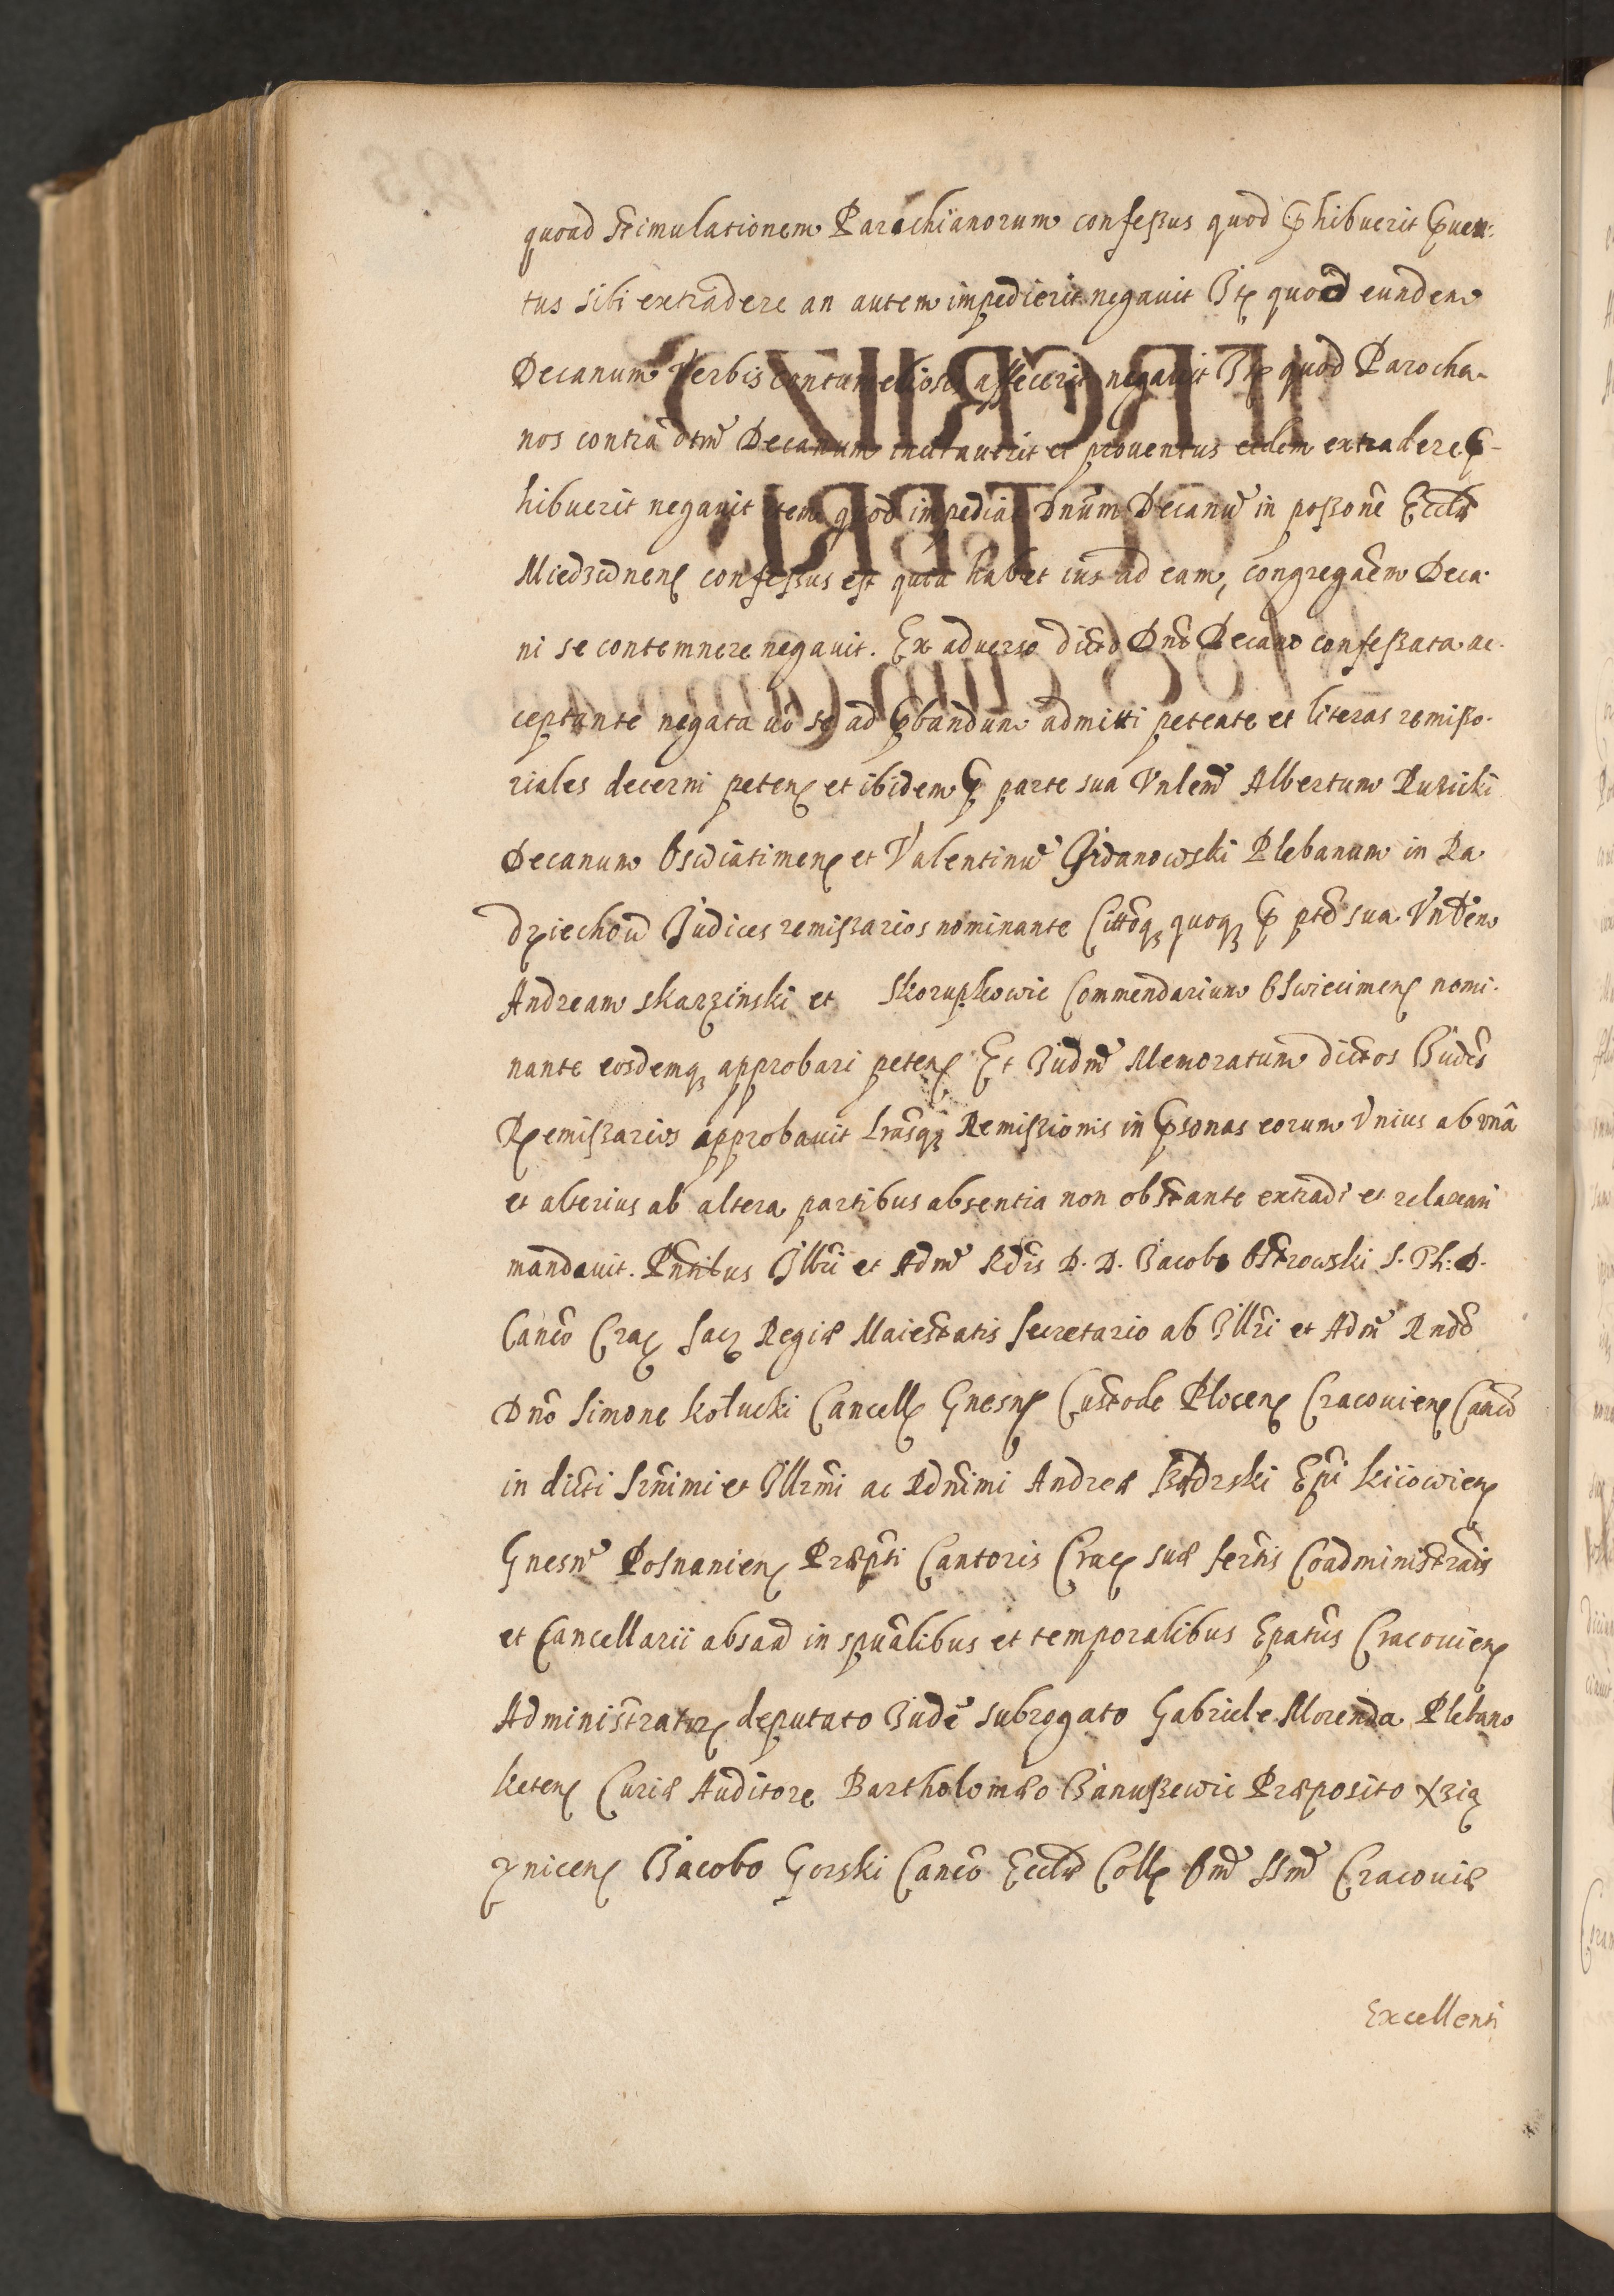 quoad stimulationem Parochianorum confeßus quod ꝓhibuerit ꝓuen:
tus sibi extradere an autem impedierit negauit Itꝫ quod eundem
Decanum Verbis contumeliosis affecerit negauit Itꝫ quod Parocha-
nos contra dtm̃ Decanum incitauerit et prouentus eidem extradere ꝓ-
hibuerit negauit item quod impediat Dnum Decanũ in poßone Eccłæ
Miedzwnenꝭ confeßus est quia habet ius ad eam, congregaẽm Deca-
ni se contemnere negauit. Ex aduerso dicto Dño Decano confeßata ac-
ceptante negata uõ se ad ꝓbandum admitti petente et literas remißo-
riales decerni petenꝭ et ibidem ꝓ parte sua Vnlem̃ Albertum Rusicki
Decanum Oswiatimenꝭ et Valentinũ Zidanowski Plebanum in Ra
dziechow Iudices remißarios nominante Cittoqꝫ quoqꝫ ꝓ pte sua Vnlem
Andream Skarzinski et Skorupkowic Commendarium Oswiecimenꝭ nomi-
nante eosdemqꝫ approbari petenꝭ Et Iudm̃ Memoratum dictos Iudẽs
Remißarios approbauit Lrãsqꝫ Remißionis in ꝑsonas eorum Vnius ab vnã
et alterius ab altera partibus absentia non obstante extradi et relaxari
mandauit. Pñtibus Illri et Adm̃ Rdis D. D. Iacobo Ostrowski S. Th: D.
Canco Cracꝭ Sacꝫ Regiæ Maiestatis Secretario ab Illri et Adm̃ Rndo
Dño Simone Kołucki Cancellꝭ Gnesnꝭ Custode Plocenꝭ Cracouienꝭ Canco
in dicti Srmimi et Illrmi ac Rdmimi Andreæ Epi Kiiowienꝭ
Gnesñ Posnanienꝭ Præpti Cantoris Cracꝭ suæ Sertis Coadministratis
et Cancellarii in spualibus et temporalibus Epatus Cracouienꝭ
Administratorꝭ deputato Iudẽ subrogato Gabriele Morenda Plebano
Ketenꝭ Curiæ Auditore Bartholomæo Ianußewic Præposito Xzią
znicenꝭ Iacobo Gorski Canco Eccłæ Collꝭ Om̃ SSm̃ Cracouiæ
Excellenti